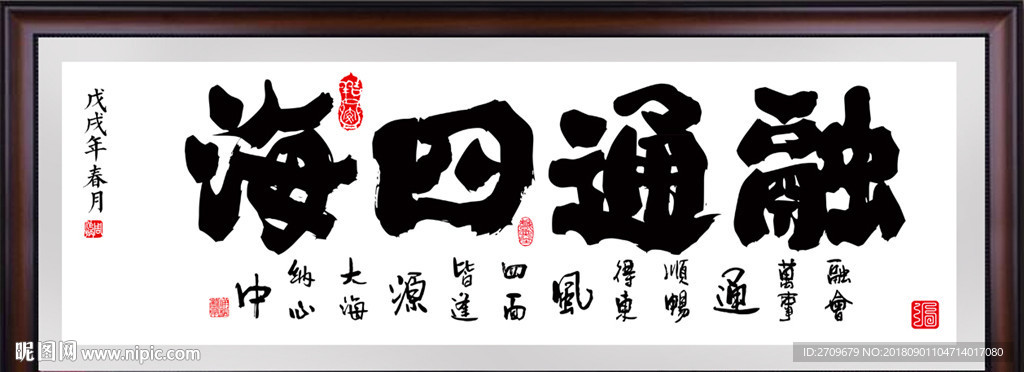 融通四海
融會
萬事
通
順暢
得東
風
四面
皆逢
源
大海
納山
中
戊戌年春月
昵图网 www.nipic.com
ID:2709679 NO:20180901104714017080